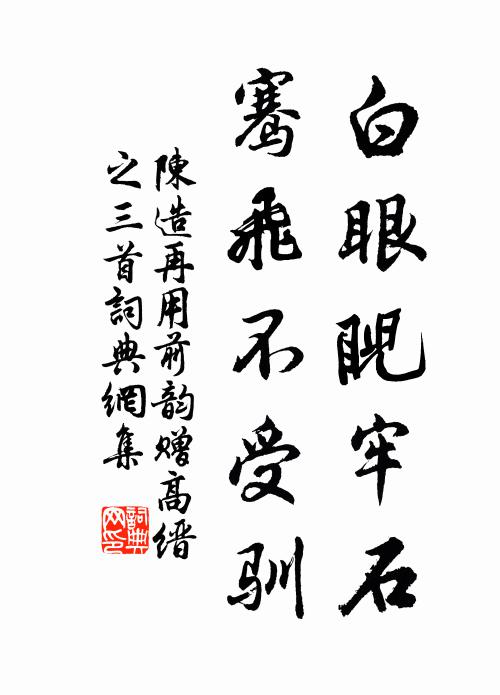 白眼睨牢石
骞飛不受馴
陳造再用前韵赠高缙
之三首詞典網集
詞典网印